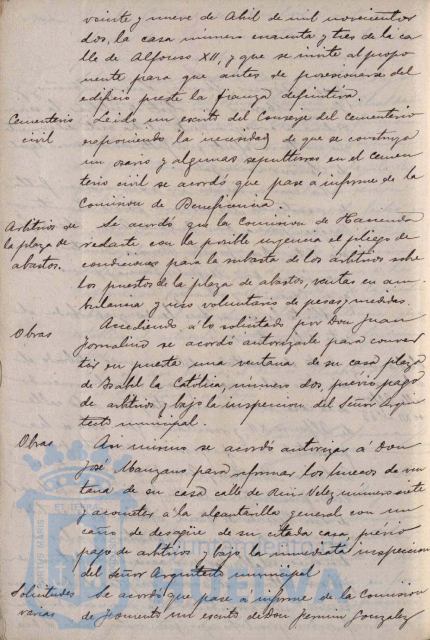 veinte y nueve de Abril de mil novecientos
dos, la casa número cuarenta y tres de la ca
lle de Alfonso XII, y que se invite al propo
nente para que antes de posesionarse del
edificio preste la fianza definitiva.
Cementerio civil
Leido un escrito del Conserje del cementerio
exponiendo la necesidad de que se construya
un osario y algunas sepulturas en el cemen
terio civil se acordó que pase á informe de la
Comision de Beneficencia.
Arbitrios de la plaza de abastos.
Se acordó que la Comision de Hacienda
redacte con la posible urgencia el pliego de
condiciones para la subasta de los arbitrios sobre
los puestos de la plaza de abastos, ventas en am
bulancia y uso voluntario de pesas y medidas.
Obras
Accediendo á lo solicitado por Don Juan
Jornalino se acordó autorizarle para conver
tir en puerta una ventana de su casa plaza
de Isabel la Católica, número dos, prévio pago
de arbitrios y bajo la inspeccion del Señor Arqui
tecto municipal.
Obras
Asi mismo se acordó autorizar á Don
José Manzano para reformar los huecos de ven
tana de su casa calle de Ruiz-Velez número siete
y acometer á la alcantarilla general con un
caño de desagüe de su citada casa, prévio
pago de arbitrios y bajo la inmediata inspeccion
del Señor Arquitecto municipal
Solicitudes varias
Se acordó que pase á informe de la Comision
de Fomento un escrito de Don Fermin Gonzalez